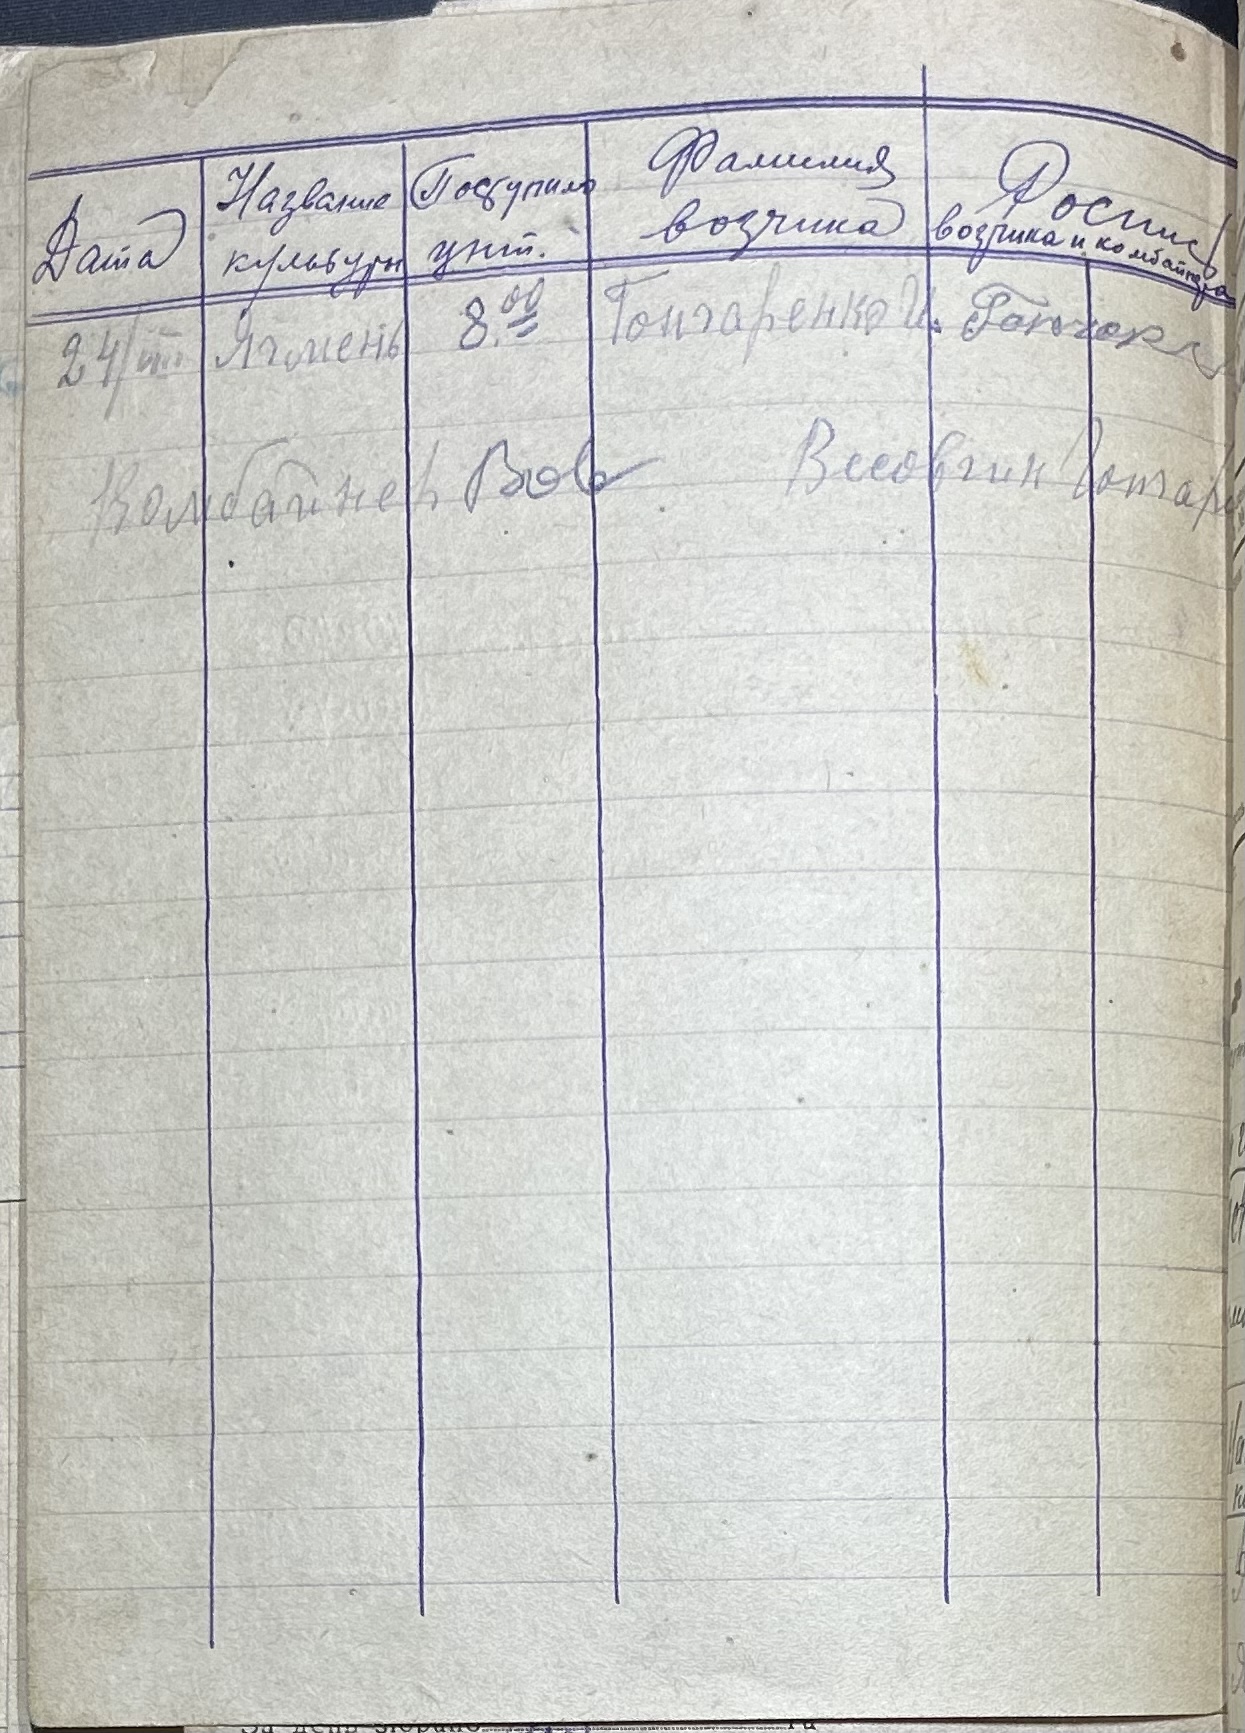 Дата
Название культуры
Поступило цнт.
Фамилия возчика
Роспись возчика и комбайнера
24/VIII Ячмень 8.00 Гончаренко И. Гончар
Комбайнер Весовчик Гончар
За день убрано га